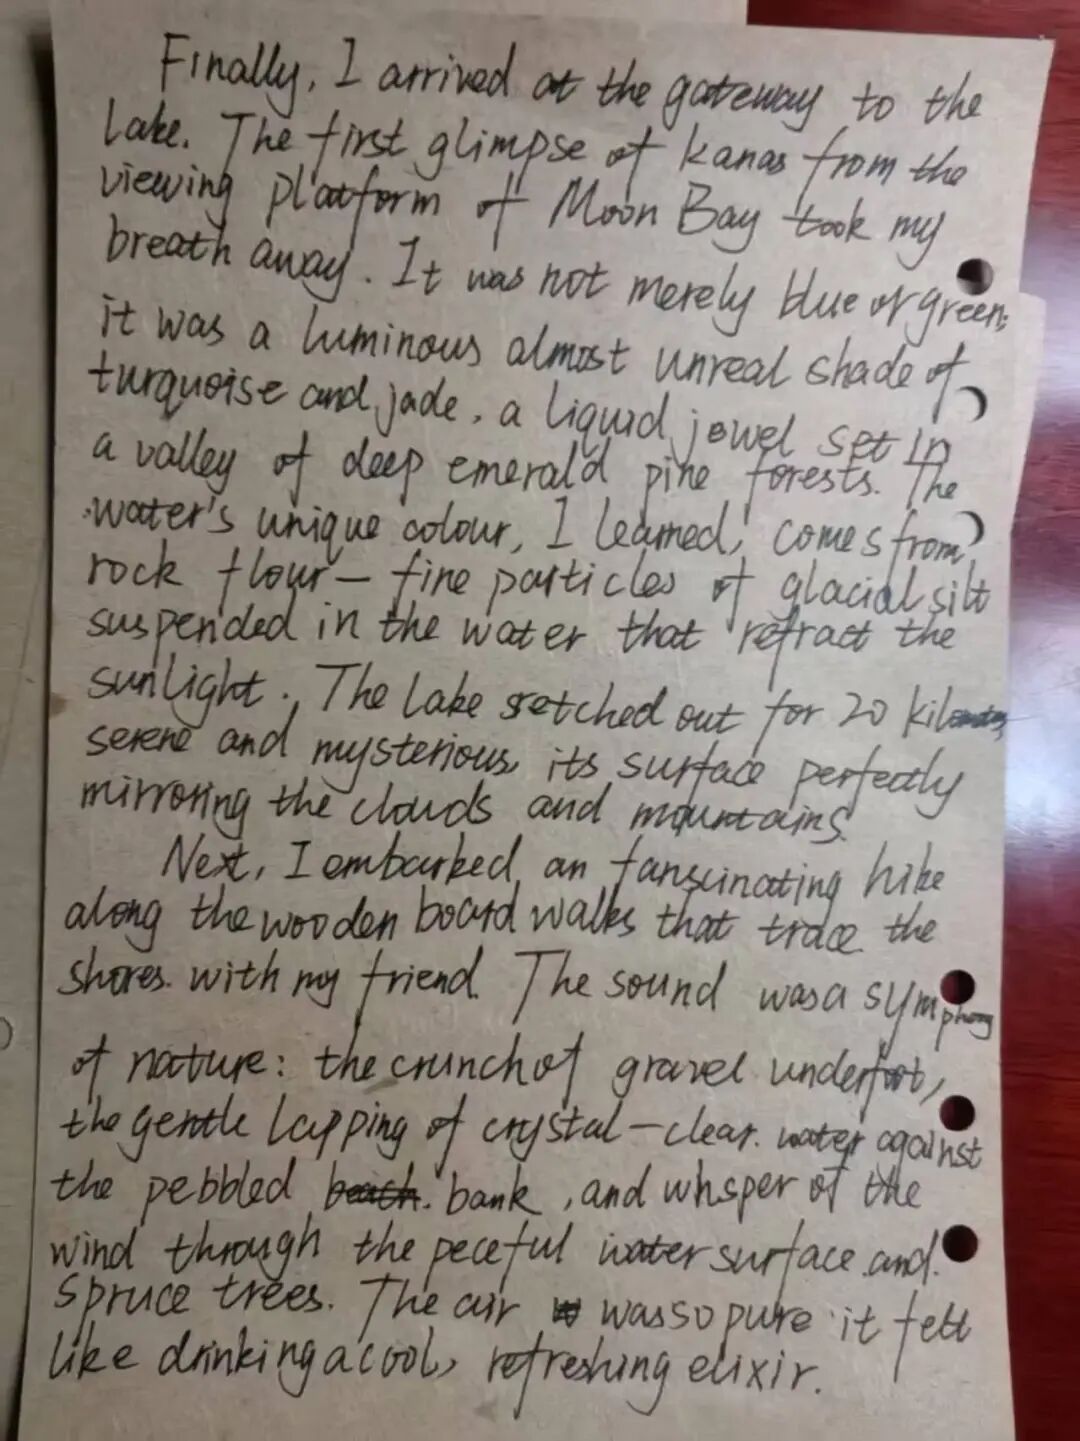 Finally, I arrived at the gateway to the
Lake. The first glimpse of Kanas from the
viewing platform of Moon Bay took my
breath away. It was not merely blue or green;
it was a luminous almost unreal shade of
turquoise and jade, a liquid jewel set in
a valley of deep emerald pine forests. The
water's unique colour, I learned, comes from
rock flour — fine particles of glacial silt
suspended in the water that refract the
sunlight. The Lake setched out for 20
serene and mysterious, its surface perfectly
mirroring the clouds and mountains.
Next, I embarked an fanscinating hike
along the wooden board walks that trace the
shores. with my friend. The sound was a symphony
of nature: the crunch of gravel underfoot,
the gentle lapping of crystal-clear. water against
the pebbled bank, and whsper of the
wind through the peceful water surface and
spruce trees. The air was so pure it felt
like drinking a cool, refreshing elixir.